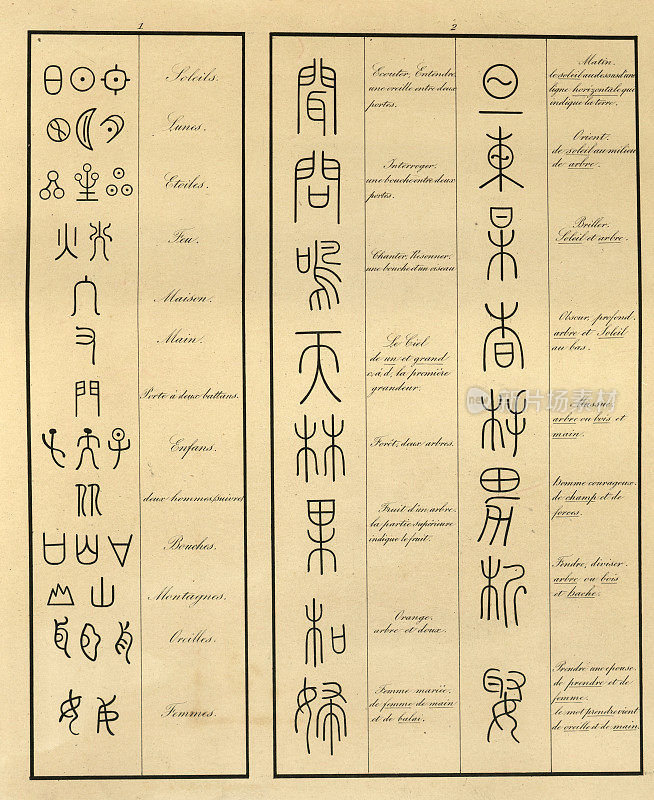 1
2
Soleils.
Lunes.
Etoiles.
Feu.
Maison.
Main.
Porte à deux battans.
Enfans.
deux hommes, suivre
Bouches.
Montagnes.
Oreilles.
Femmes.
聞
Ecouter, Entendre,
une oreille entre deux
portes.
問
Interroger.
une bouche entre deux
portes.
鳴
Chanter, Resonner,
une bouche d'un oiseau
天
Le Ciel
de un et grand
c.à.d. la première
grandeur.
林
Forêt, deux arbres.
果
Fruit d'un arbre.
la partie supérieure
indique le fruit.
和
Orange.
arbre et doux.
婦
Femme mariée.
de femme de main
et de balai.
旦
Matin.
le soleil au dessus d'une
ligne horizontale qui
indique la terre.
東
Orient.
de soleil au milieu
de arbre.
杲
Briller.
Soleil et arbre.
杳
Obscur, profond.
arbre et Soleil
au bas.
arbre ou bois et
main.
男
Homme courageux.
de champ et de
forces.
析
Fendre, diviser.
arbre ou bois
et hache.
娶
Prendre une épouse.
de prendre et de
femme.
le mot prendre vient
de oreille et de main.
iStock